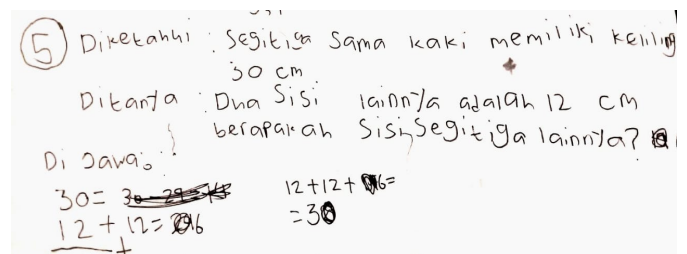 5 Diketahui : Segitiga Sama kaki memiliki keliling
30 cm
Ditanya : Dua Sisi lainnya adalah 12 cm
berapakah Sisi Segitiga lainnya?
Di Jawab :
30 =
12 + 12 = 6
12 + 12 + 6 =
= 30